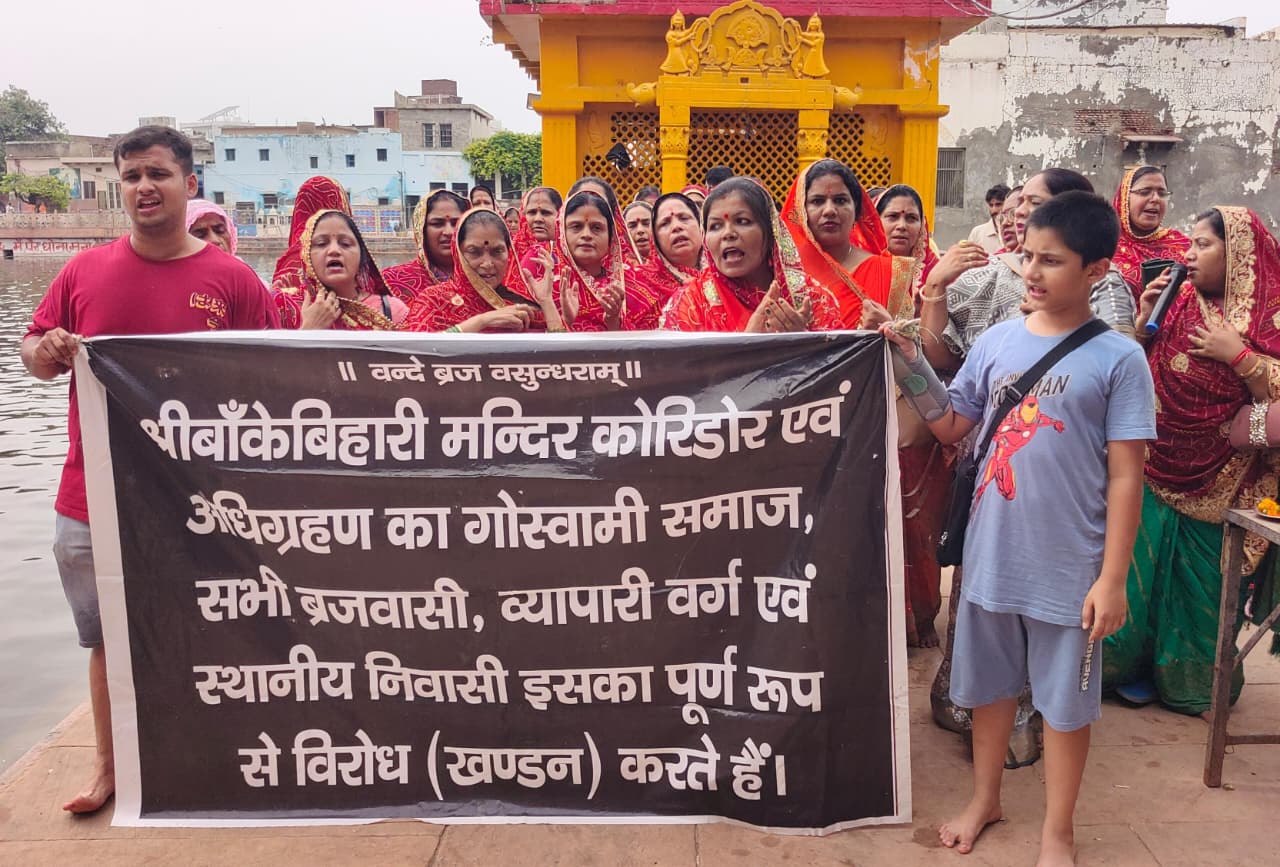 ॥ वन्दे ब्रज वसुन्धराम् ॥
श्रीबाँकेबिहारी मन्दिर कोरिडोर एवं
अधिग्रहण का गोस्वामी समाज,
सभी ब्रजवासी, व्यापारी वर्ग एवं
स्थानीय निवासी इसका पूर्ण रूप
से विरोध (खण्डन) करते हैं।
THE INV
MAN
AVENG